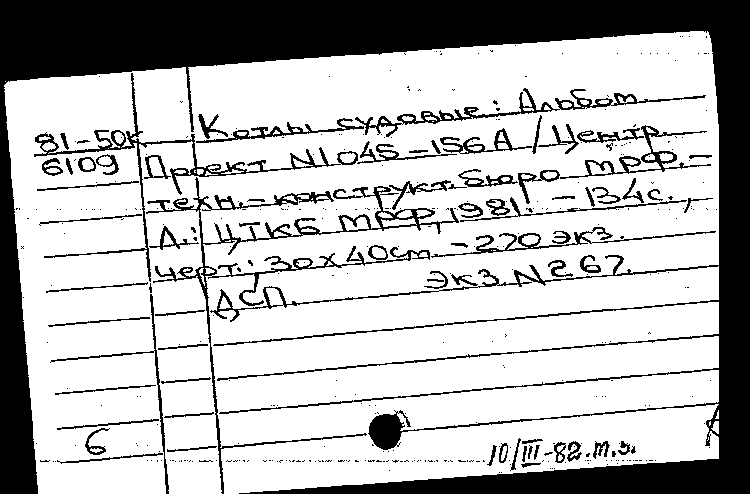 81-50к Котлы судовые: Альбом.
6109 Проект N1045-156А / Центр.
техн.-конструкт. бюро МРФ.-
Л.: ЦТКБ МРФ, 1981. - 134с.,
черт.; 30х40cm. - 270 экз.
ДСП. экз. N267.
6
10/III-82.т.з.